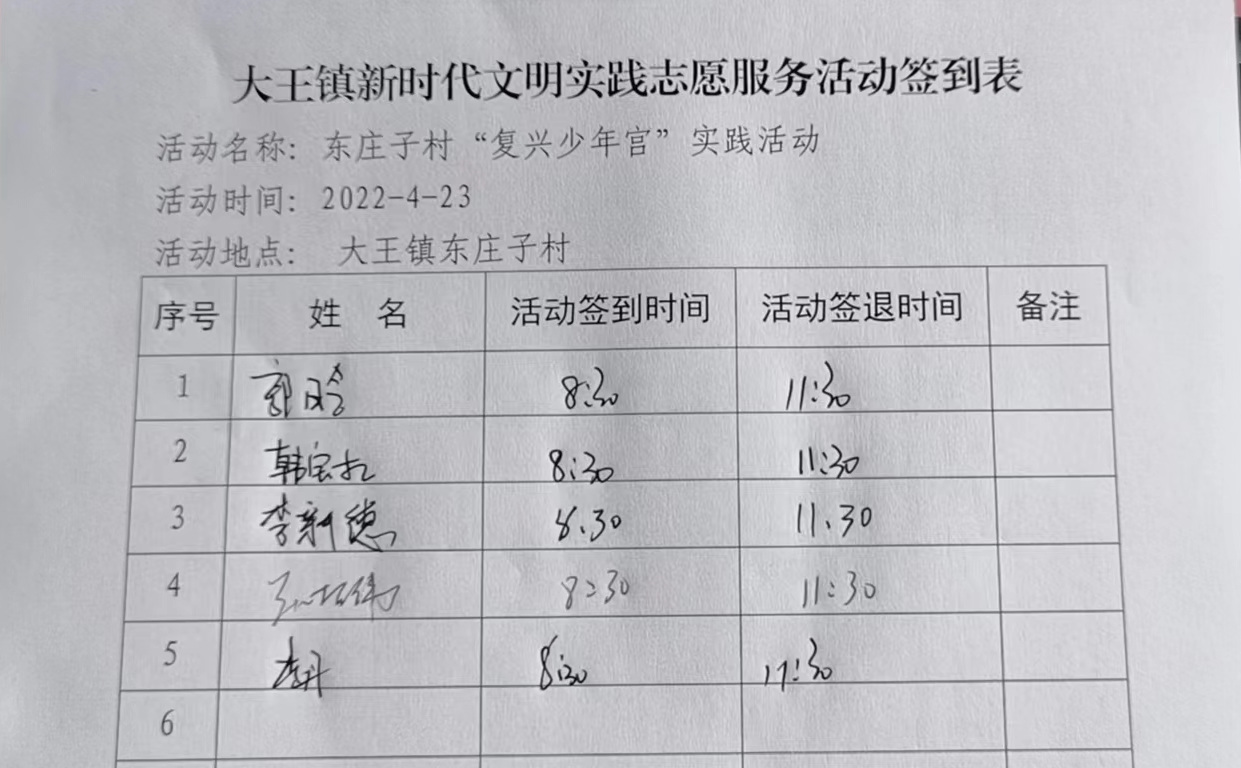 大王镇新时代文明实践志愿服务活动签到表
活动名称: 东庄子村“复兴少年宫”实践活动
活动时间: 2022-4-23
活动地点: 大王镇东庄子村
序号 姓 名 活动签到时间 活动签退时间 备注
1 8:30 11:30
2 韩宝 8:30 11:30
3 李新德 8.30 11.30
4 8:30 11:30
5 李丹 8:30 11:30
6